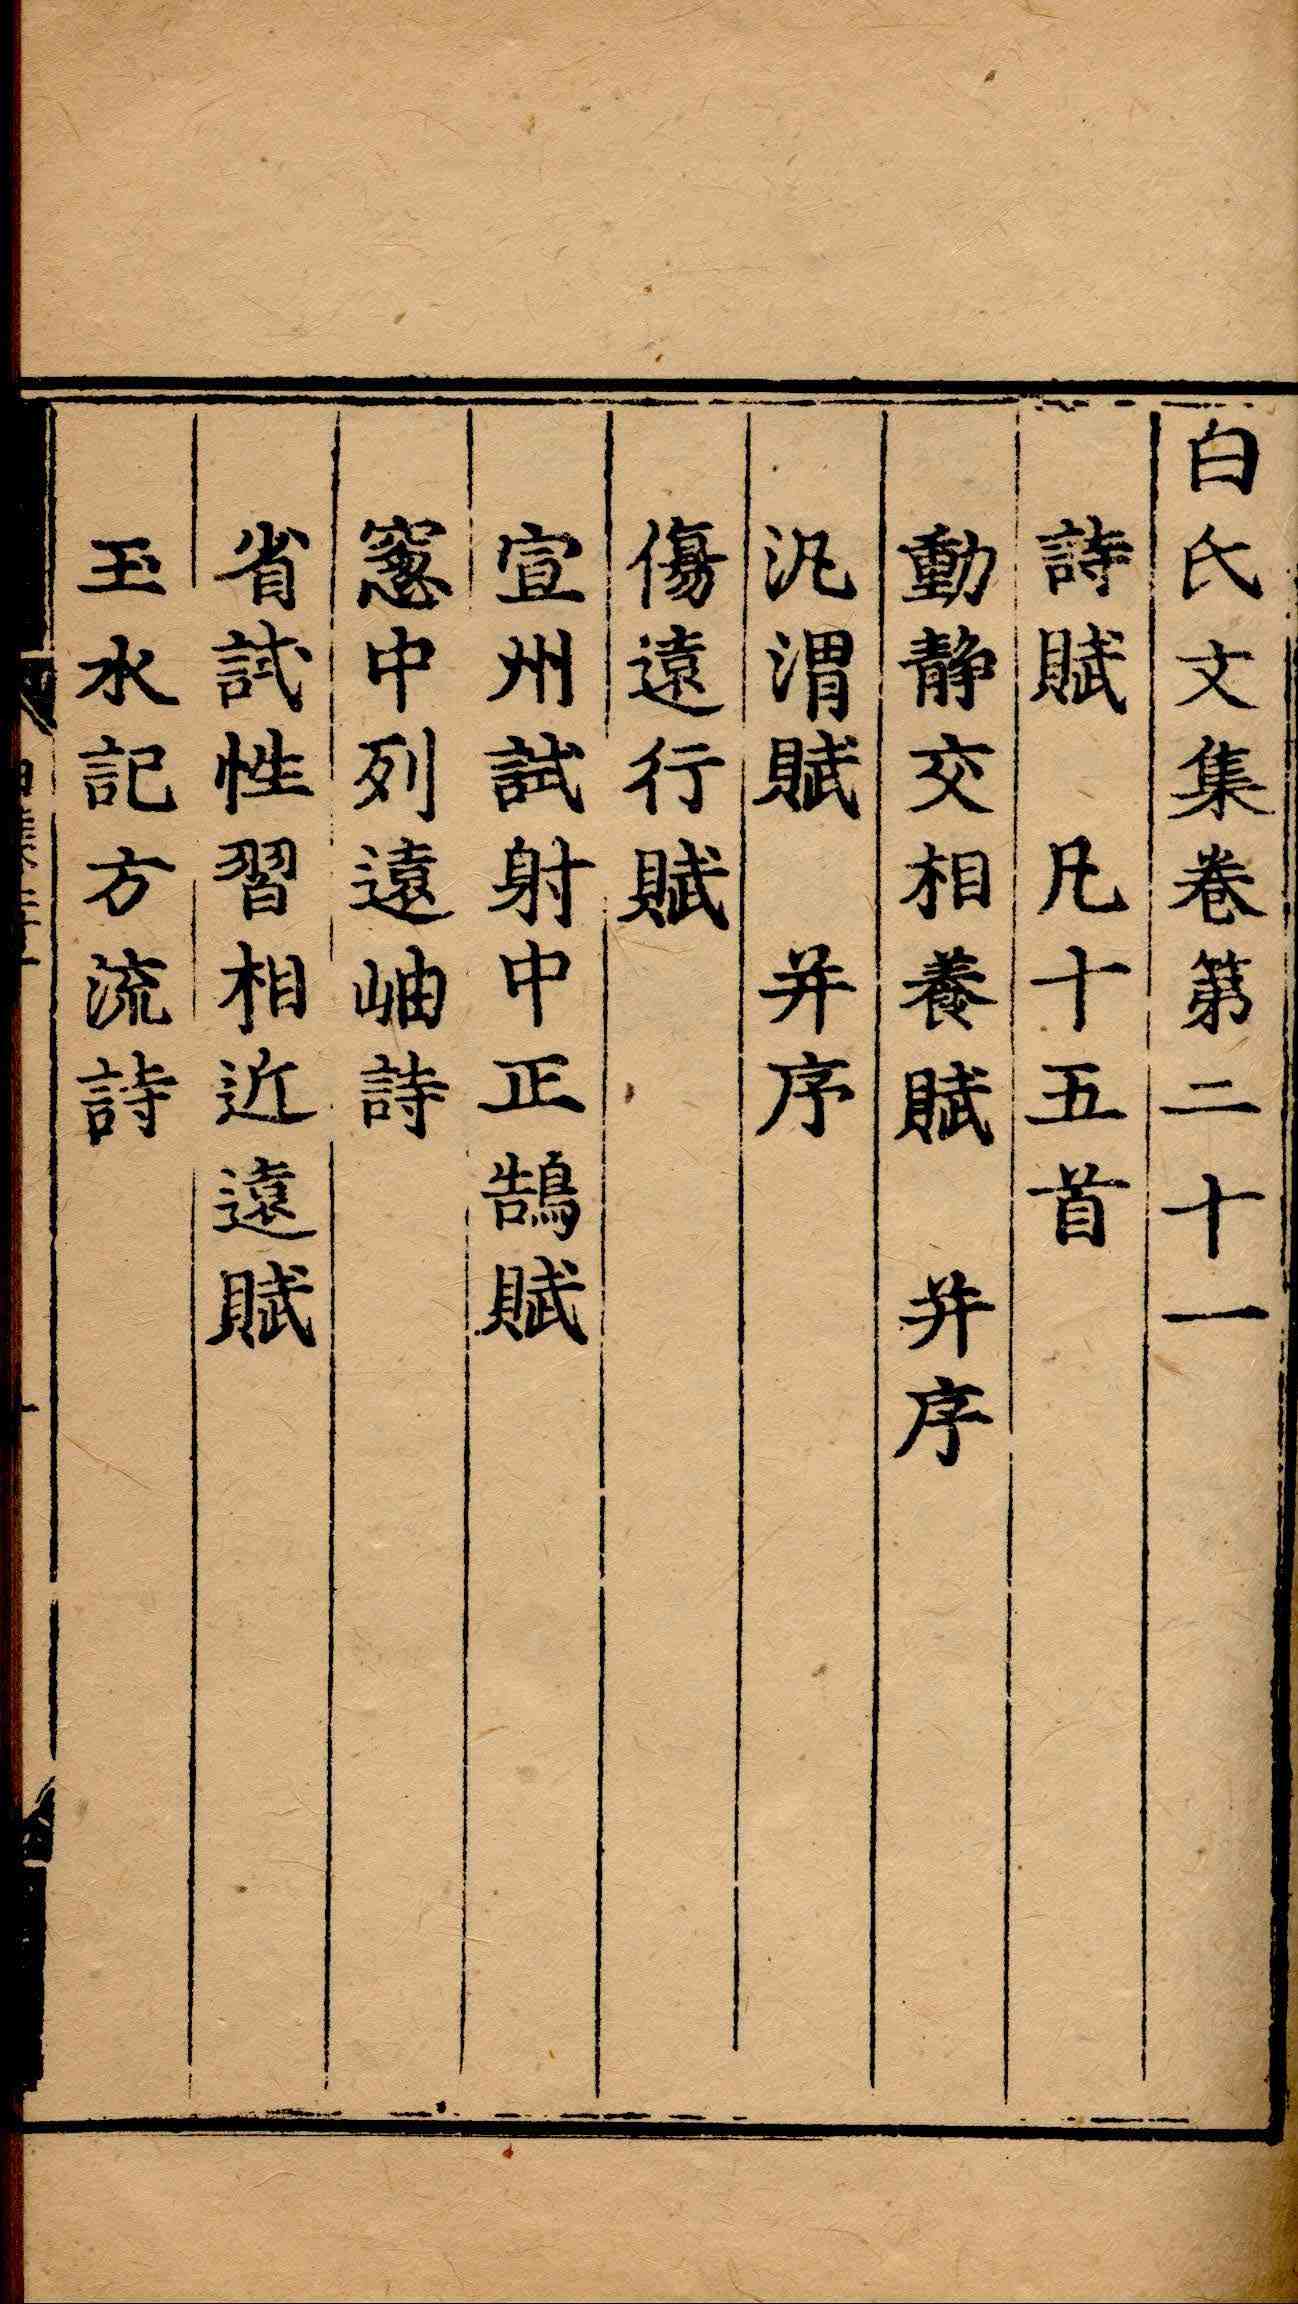 白氏文集卷第二十一
詩賦　凡十五首
動静交相養賦　并序
汎渭賦　并序
傷遠行賦
宣州試射中正鵠賦
窻中列遠岫詩
省試性習相近遠賦
玉水記方流詩